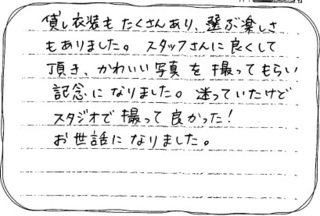 貸し衣装もたくさんあり、選ぶ楽しさ
もありました。スタッフさんに良くして
頂き、かわいい写真を撮ってもらい
記念になりました。迷っていたけど
スタジオで撮って良かった！
お世話になりました。